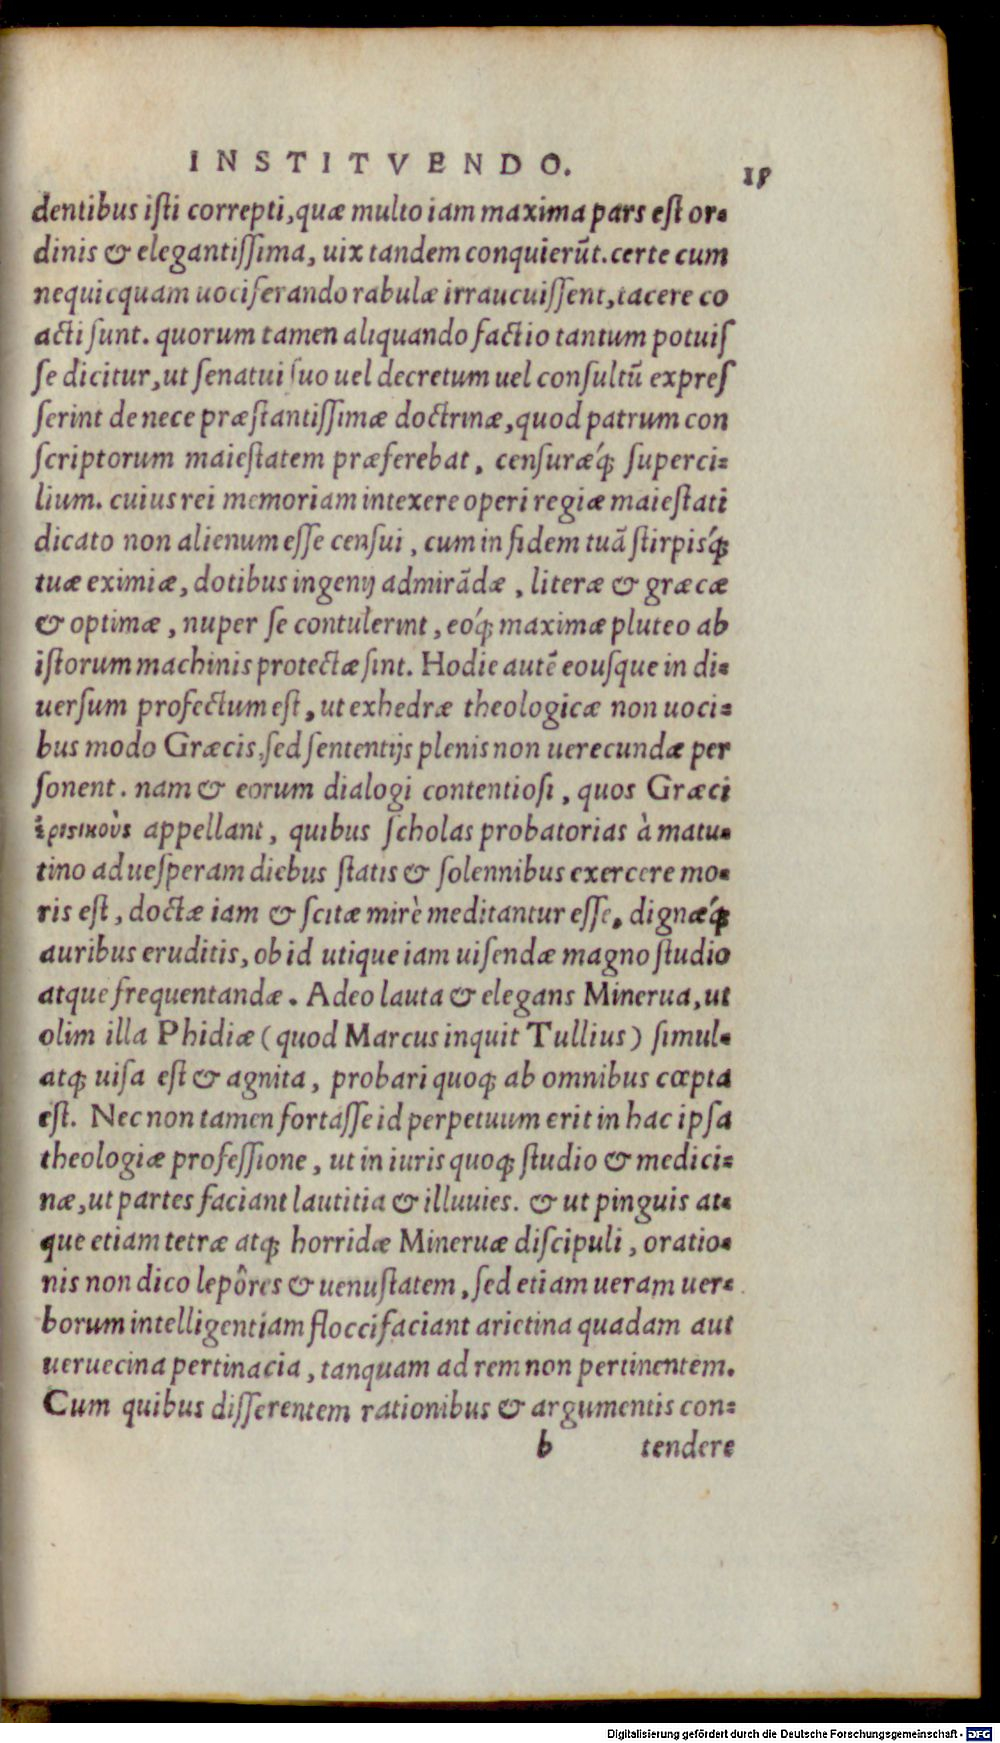 INSTITVENDO. 19
dentibus iſti correpti, quæ multo iam maxima pars eſt or-
dinis & elegantiſſima, uix tandem conquierũt. certe cum
nequicquam uociferando rabulæ irraucuiſſent, tacere co
acti ſunt. quorum tamen aliquando factio tantum potuiſ
ſe dicitur, ut ſenatui ſuo uel decretum uel conſultũ expreſ
ſerint de nece præſtantiſſimæ doctrinæ, quod patrum con
ſcriptorum maieſtatem præferebat, cenſuræq́; ſuperci-
lium. cuius rei memoriam intexere operi regiæ maieſtati
dicato non alienum eſſe cenſui, cum in fidem tuã ſtirpisq́;
tuæ eximiæ, dotibus ingenij admirãdæ, literæ & græcæ
& optimæ, nuper ſe contulerint, eóq; maximæ pluteo ab
iſtorum machinis protectæ ſint. Hodie autẽ eouſque in di-
uerſum profectum eſt, ut exhedræ theologicæ non uoci-
bus modo Græcis, ſed ſententijs plenis non uerecundæ per
ſonent. nam & eorum dialogi contentioſi, quos Græci
ἐριστικοὺς appellant, quibus ſcholas probatorias à matu-
tino ad ueſperam diebus ſtatis & ſolennibus exercere mo-
ris eſt, doctæ iam & ſcitæ mirè meditantur eſſe, dignæq́;
auribus eruditis, ob id utique iam uiſendæ magno ſtudio
atque frequentandæ. Adeo lauta & elegans Minerua, ut
olim illa Phidiæ (quod Marcus inquit Tullius) ſimul-
atq; uiſa eſt & agnita, probari quoq; ab omnibus cœpta
eſt. Nec non tamen fortaſſe id perpetuum erit in hac ipſa
theologiæ profeſſione, ut in iuris quoq; ſtudio & medici-
næ, ut partes faciant lautitia & illuuies. & ut pinguis at-
que etiam tetræ atq; horridæ Mineruæ diſcipuli, oratio-
nis non dico lepôres & uenuſtatem, ſed etiam ueram uer-
borum intelligentiam flocci faciant arietina quadam aut
ueruecina pertinacia, tanquam ad rem non pertinentem.
Cum quibus diſſerentem rationibus & argumentis con-
b tendere
Digitalisierung gefördert durch die Deutsche Forschungsgemeinschaft - DFG